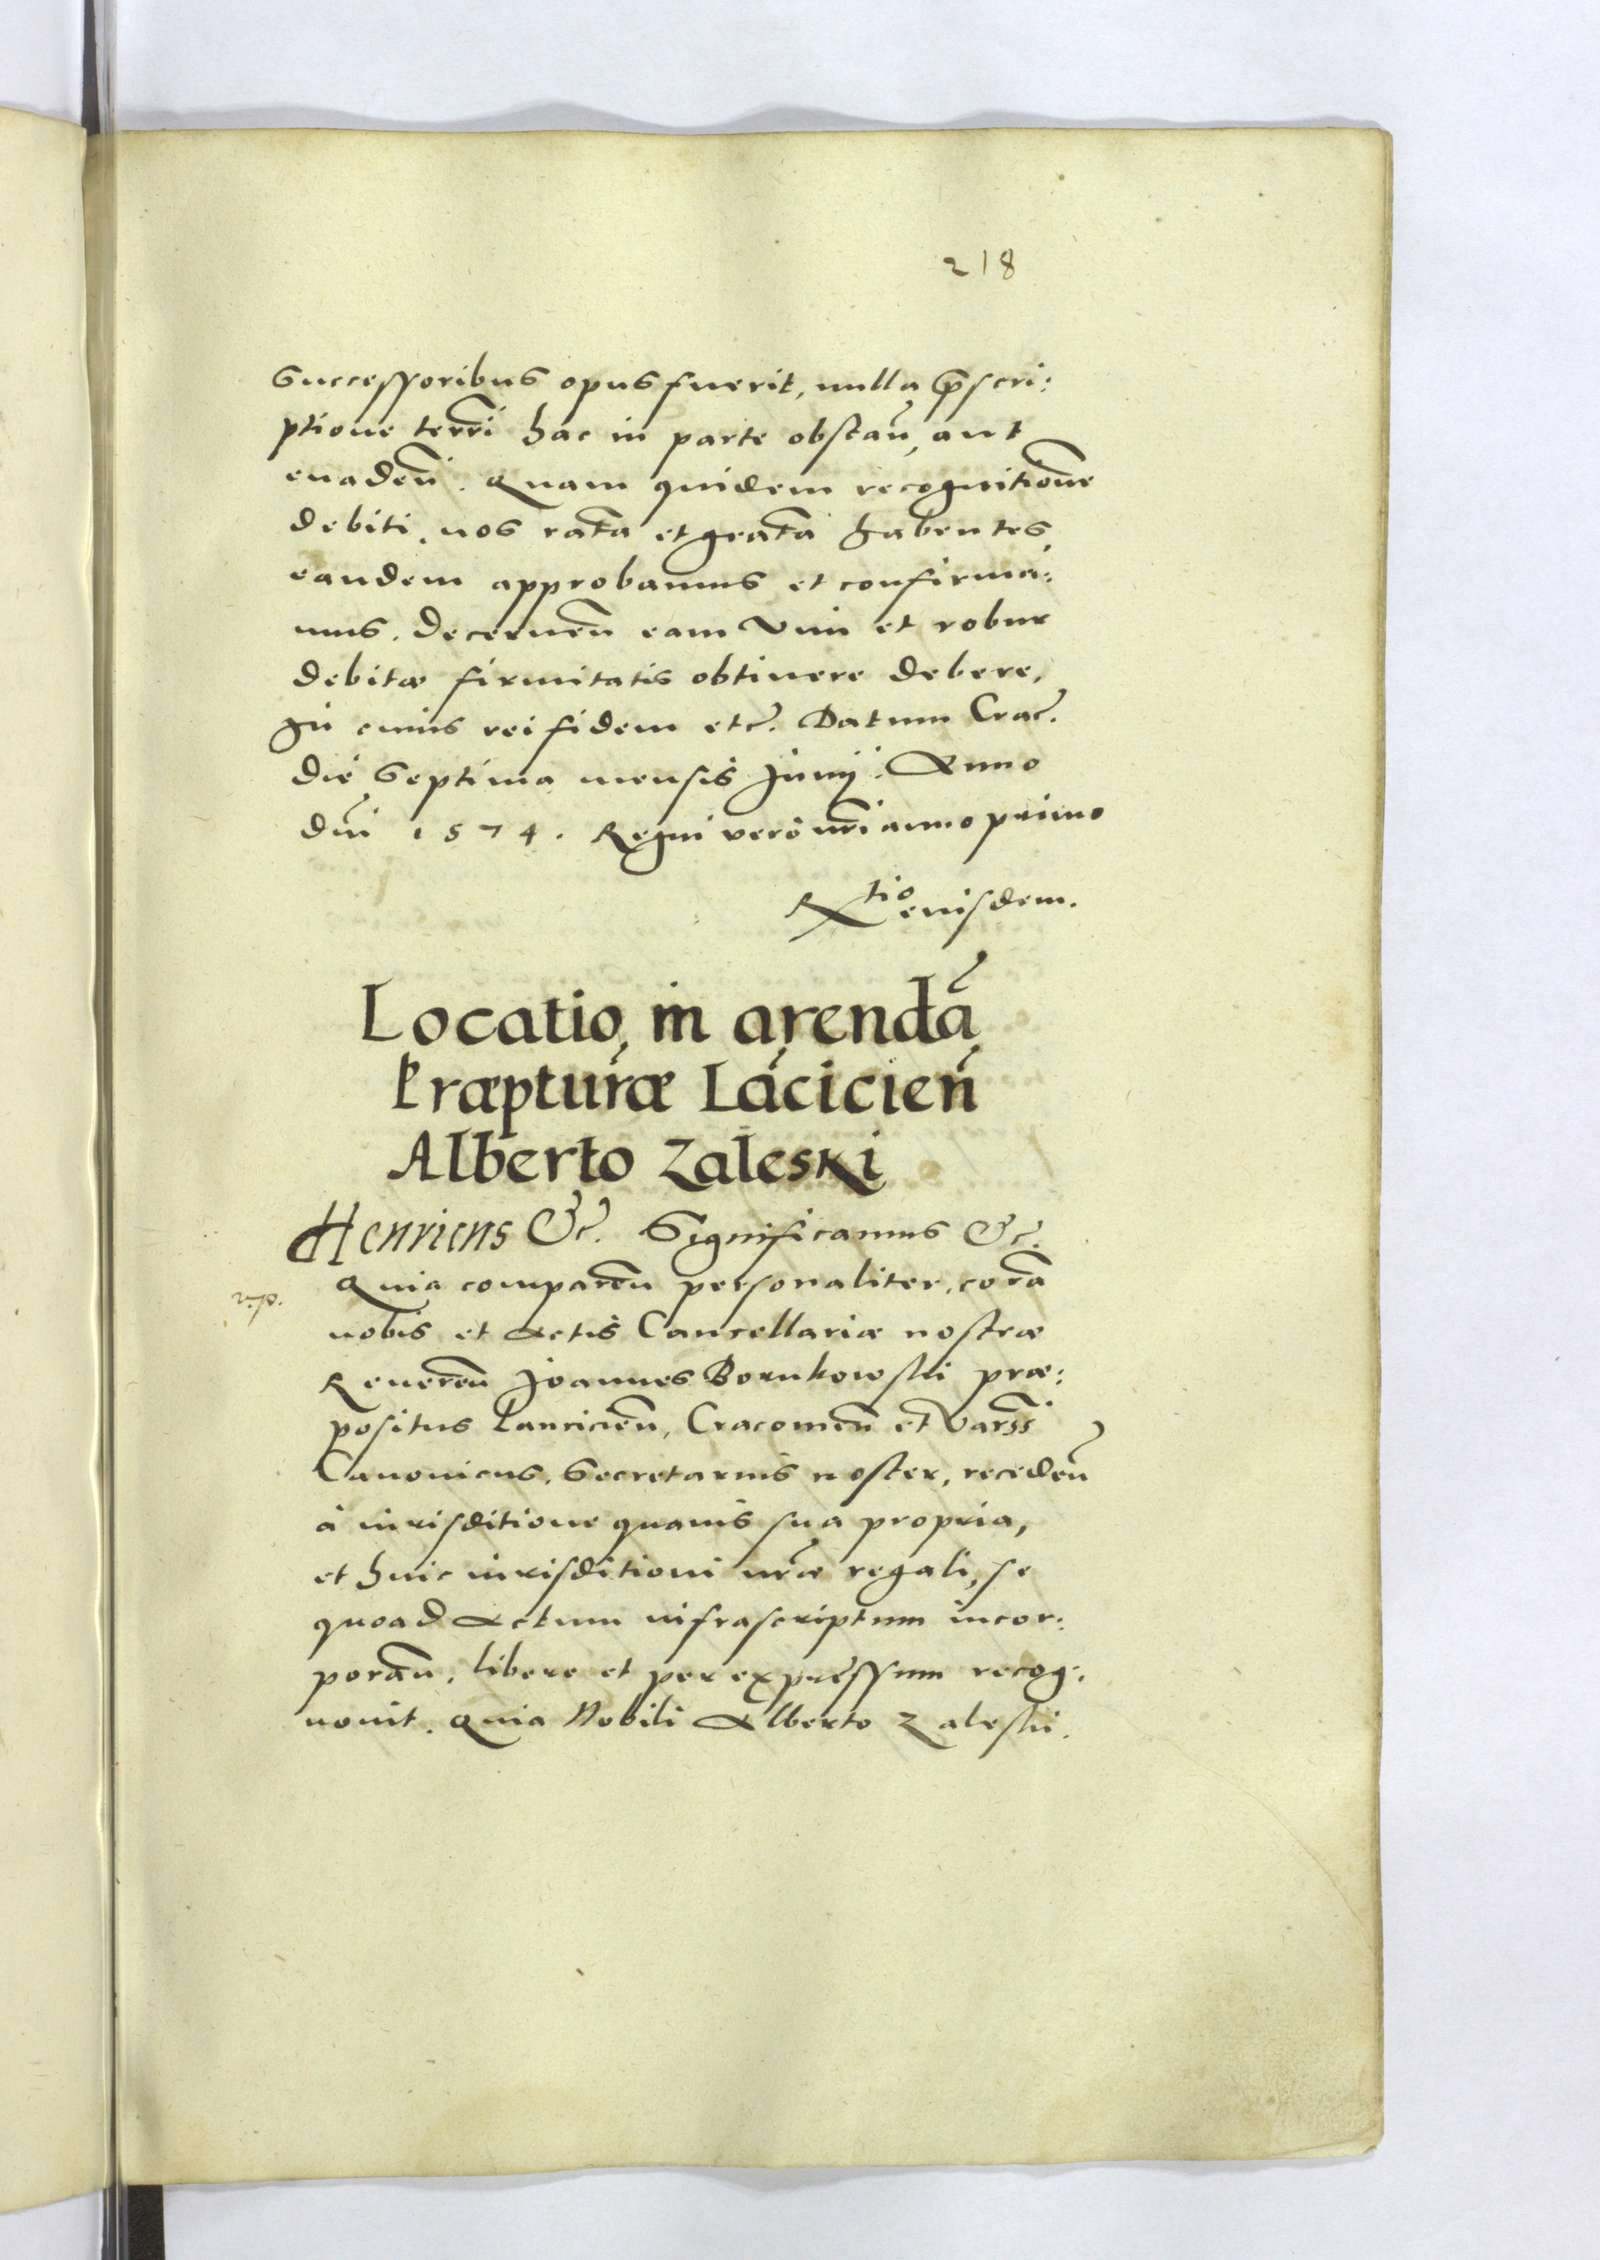 218
successoribus opus fuerit, nulla p̄scri:
ptione terrī hac in parte obstan̄, aut
evaden̄. Quam quidem recognitionē
debiti, nos ratā et gratā habentes,
eandem approbamus et confirma:
mus. decernen̄ eam vim et robur
debitæ firmitatis obtinere debere,
In cuius rei fidem etc̄. Datum Crac̄.
die Septima mensis Junij. Anno
dn̄i 1574. Regni verò nr̄i anno primo
Rtio eiusdem.
Locatio in arendā
Præptur̄æ Lācicien̄
Alberto Zaleski
Henricus &c. Significamus &c.
Quia comparen̄ personaliter, corā
nobis et Actis Cancellariæ nostræ
Reveren̄ Joannes Borukowski præ:
positus Lancicien̄, Cracovien̄ et Varss̄
Canonicus, Secretarius noster, receden̄
à iurisditione quavis sua propria,
et huic iurisditioni nr̄æ regali, se
quoad Actum infrascriptum incor:
poran̄, libere et per expressum recog:
novit. Quia Nobili Alberto Zaleski.